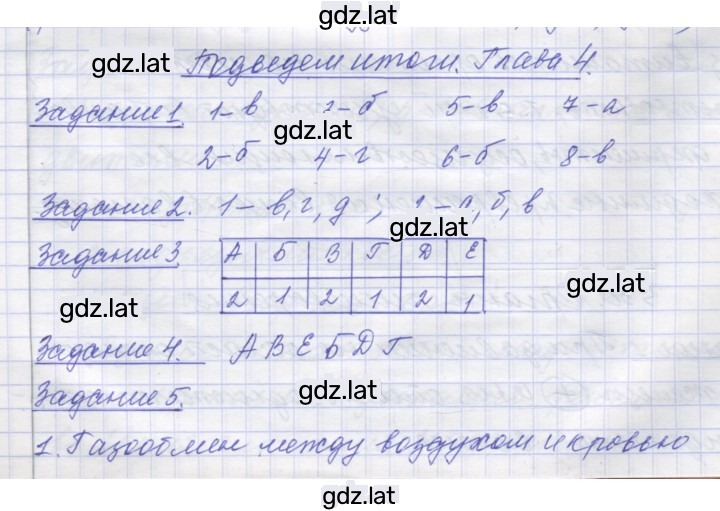 gdz.lat
gdz.lat
Подведем итоги. Глава 4.
Задание 1. 1-в -б 5-в 7-а
gdz.lat
2-б 4-г 6-б 8-в
Задание 2. 1-в, г, д; б, в
gdz.lat
Задание 3. А Б В Г Д Е
2 1 2 1 2 1
gdz.lat
gdz.lat
Задание 4. А В Е Б Д Г
Задание 5.
gdz.lat
1. Газообмен между воздухом и кровью
gdz.lat